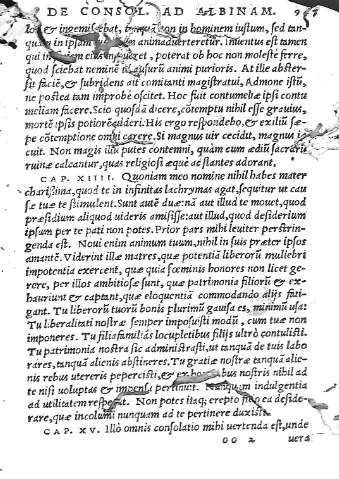 DE CONSOL. AD ALBINAM.
los & ingemiscebat, tanquã non in hominem iustum, sed tan-
quam in ipsam animaduerteretur. Inuentus est tamen
qui in faciem eius inspueret, poterat ob hoc non moleste ferre,
quod sciebat neminẽ id ausurũ animi purioris. At ille abster-
sit faciẽ, & subridens ait comitanti magistratui, Admone istũ,
ne postea tam improbe oscitet. Hoc fuit contumeliæ ipsi contu
meliam facere. Scio quosdã dicere, cõtemptu nihil esse grauius,
mortẽ ipsis potiorẽ uideri. His ergo respondebo, & exiliũ sæ-
pe cõtemptione omni carere. Si magnus uir cecidit, magnus ia
cuit. Non magis illũ putes contemni, quàm cum ædiũ sacrarũ
ruinæ calcantur, quas religiosi æquè ac stantes adorant,
CAP. XIIII. Quoniam meo nomine nihil habes mater
charissima, quod te in infinitas lachrymas agat, sequitur ut cau
sæ tuæ te stimulent. Sunt autẽ duæ: nã aut illud te mouet, quod
præsidium aliquod uideris amisisse: aut illud, quod desiderium
ipsum per te pati non potes. Prior pars mihi leuiter perstrin-
genda est. Noui enim animum tuum, nihil in suis præter ipsos
amantẽ. Viderint illæ matres, quæ potentiã liberorũ muliebri
impotentia exercent, quæ quia fœminis honores non licet ge-
rere, per illos ambitiosæ sunt, quæ patrimonia filiorũ & ex-
hauriunt & captant, quæ eloquentiã commodando alijs fati-
gant. Tu liberorũ tuorũ bonis plurimũ gauisa es, minimũ usa:
Tu liberalitati nostræ semper imposuisti modũ, cum tuæ non
imponeres. Tu filiafamiliâs locupletibus filijs ultrò contulisti.
Tu patrimonia nostra sic administrasti, ut tanquã de tuis labo
rares, tanquã alienis abstineres. Tu gratiæ nostræ tanquã alie-
nis rebus utereris pepercisti, & ex honoribus nostris nihil ad
te nisi uoluptas & impensa pertinuit. Nunquam indulgentia
ad utilitatem respexit. Non potes itaq; erepto filio ea deside-
rare, quæ incolumi nunquam ad te pertinere duxisti.
CAP. XV. Illò omnis consolatio mihi uertenda est, unde
oo 2 uera